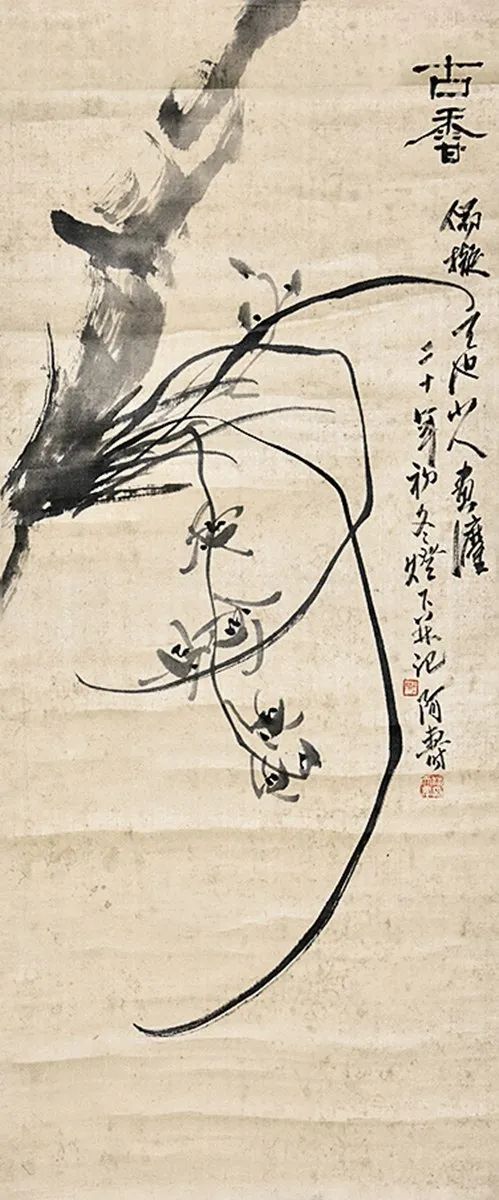 古香
偶擬天池山人畫灋
二十年初冬燈下并記阿壽